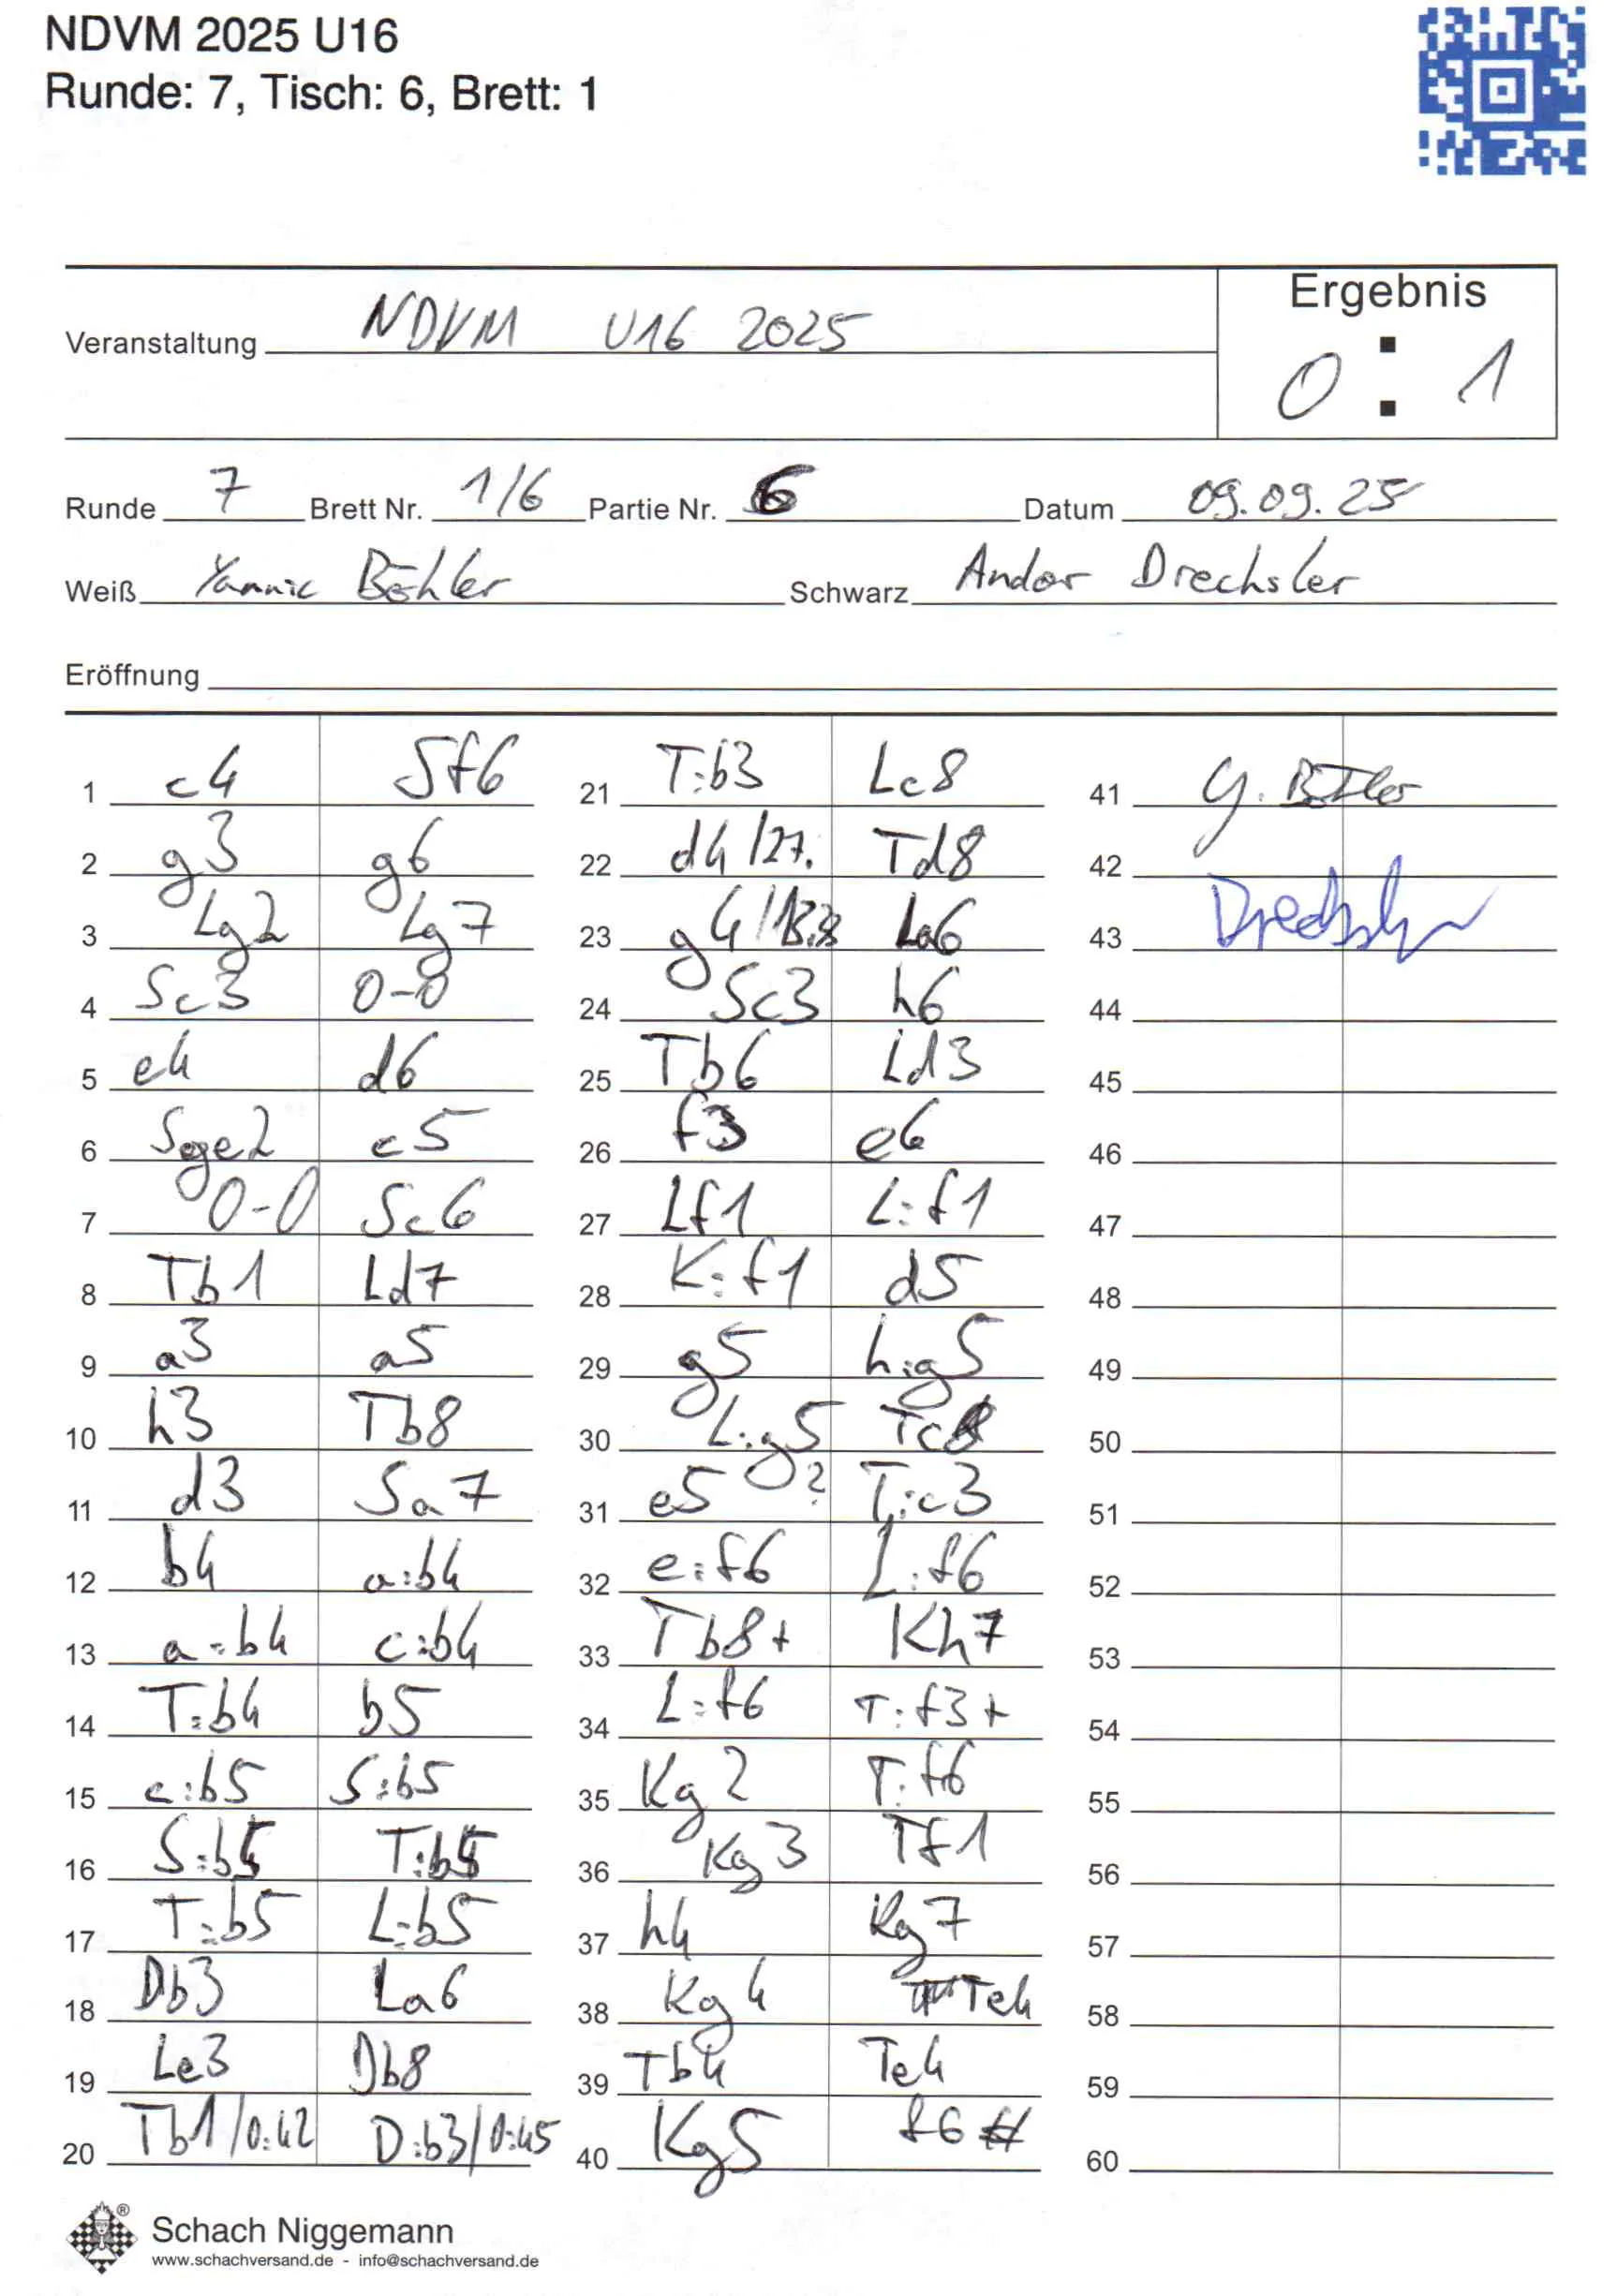 NDVM 2025 U16
Runde: 7, Tisch: 6, Brett: 1
Ergebnis
Veranstaltung NDVM U16 2025
0 : 1
Runde 7 Brett Nr. 1/6 Partie Nr. 6 Datum 09.09.25
Weiß Yannic Böhler Schwarz Andor Drechsler
Eröffnung
1 c4 Sf6
2 g3 g6
3 Lg2 Lg7
4 Sc3 0-0
5 e4 d6
6 Sge2 c5
7 0-0 Sc6
8 Tb1 Ld7
9 a3 a5
10 h3 Tb8
11 d3 Sa7
12 b4 a:b4
13 a:b4 c:b4
14 T:b4 b5
15 c:b5 S:b5
16 S:b5 T:b5
17 T:b5 L:b5
18 Db3 La6
19 Le3 Db8
20 Tb1/0:42 D:b3/0:45
21 T:b3 Lc8
22 d4/27. Td8
23 g4 La6
24 Sc3 h6
25 Tb6 Ld3
26 f3 e6
27 Lf1 L:f1
28 K:f1 d5
29 g5 h:g5
30 L:g5 Tc8
31 e5? T:c3
32 e:f6 L:f6
33 Tb8+ Kh7
34 L:f6 T:f3+
35 Kg2 T:f6
36 Kg3 Tf1
37 h4 Kg7
38 Kg4 Te4
39 Tb4 Te4
40 Kg5 f6#
41 Y. Böhler
42
43 Drechsler
44
45
46
47
48
49
50
51
52
53
54
55
56
57
58
59
60
®
Schach Niggemann
www.schachversand.de - info@schachversand.de